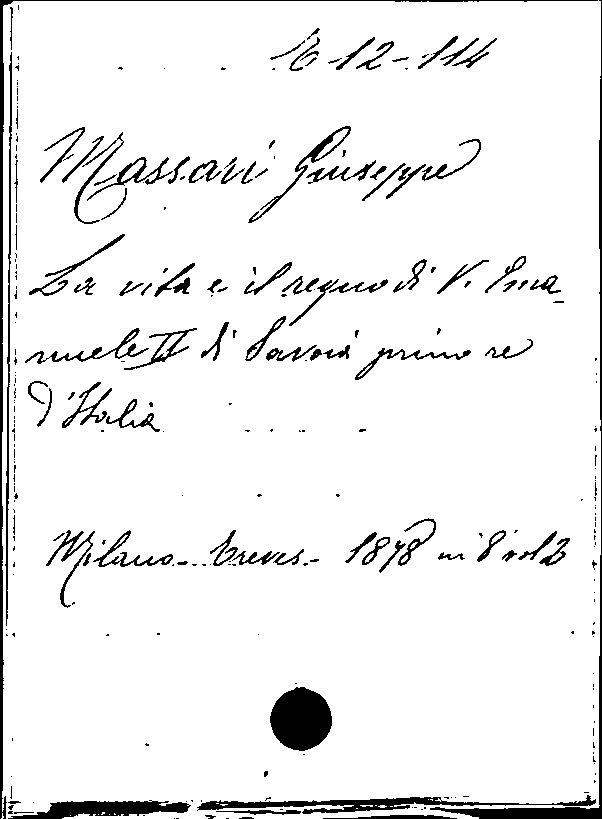 E 12-114
Massari Giuseppe
La vita e il regno di V. Ema-
nuele II di Savoia primo re
d'Italia
Milano - Treves - 1878 in 8 vol 2